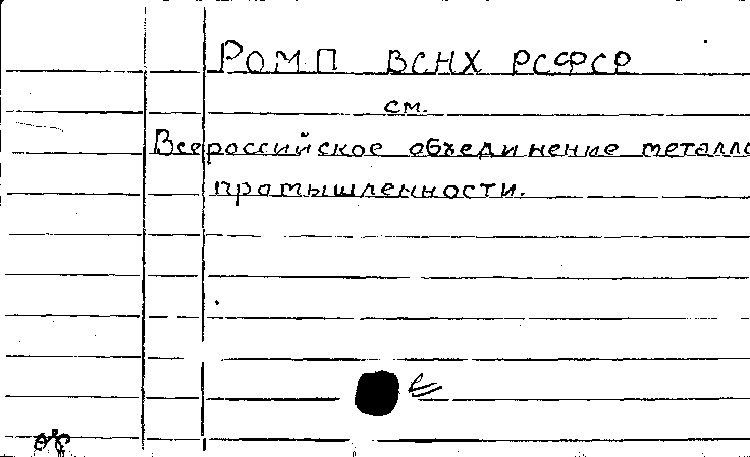 РОМП ВСНХ РСФСР
см.
Всероссийское объединение металло
промышленности.